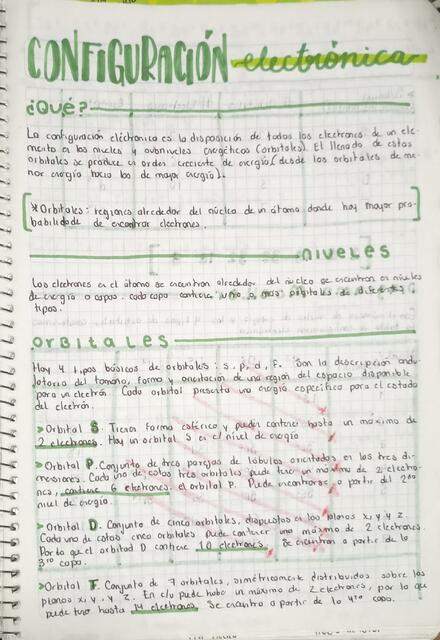 CONFIGURACIÓN electrónica
¿Qué?
La configuración eléctronica es la disposición de todos los electrones de un ele-
mento en los niveles y subniveles energéticos (orbitales). El llenado de estos
orbitales se produce en orden creciente de energía (desde los orbitales de me-
nor energía hacia los de mayor energía).
*Orbitales: regiones alrededor del núcleo de un átomo donde hay mayor pro-
babilidade de encontrar electrones.
niveles
Los electrones en el átomo se encentran alrededor del núcleo se encentran en niveles
de energía o capas. cada capa contiene uno o más orbitales de diferentes
tipos.
orbitales
Hay 4 tipos básicos de orbitales: s, p, d, F. Son la descripción ondu-
latoria del tamaño, forma y orientación de una región del espacio disponible
para un electrón. Cada orbital presenta una energía específica para el estado
del electrón.
>Orbital S. Tienen forma esférica y pueden contener hasta un máximo de
2 electrones. Hay un orbital S en c/ nivel de energía
>Orbital P. Conjunto de tres parejas de lóbulos orientados en las tres di-
mensiones. Cada uno de estos tres orbitales puede tener un máximo de 2 electro-
nes, contiene 6 electrones. el orbital P. Puede encontrarse a partir del 2do
nivel de energía.
>Orbital D. Conjunto de cinco orbitales, dispuestos en los planos x, y y z.
Cada uno de estos cinco orbitales puede contener una máximo de 2 electrones.
Por lo que el orbital D contiene 10 electrones. Se encuentran a partir de la
3ra capa.
>Orbital F. Conjunto de 7 orbitales, simétricamente distribuidos sobre los
planos x, y, y z. En c/u puede haber un máximo de 2 electrones, por lo que
puede tener hasta 14 electrones. Se encentra a partir de la 4ta capa.